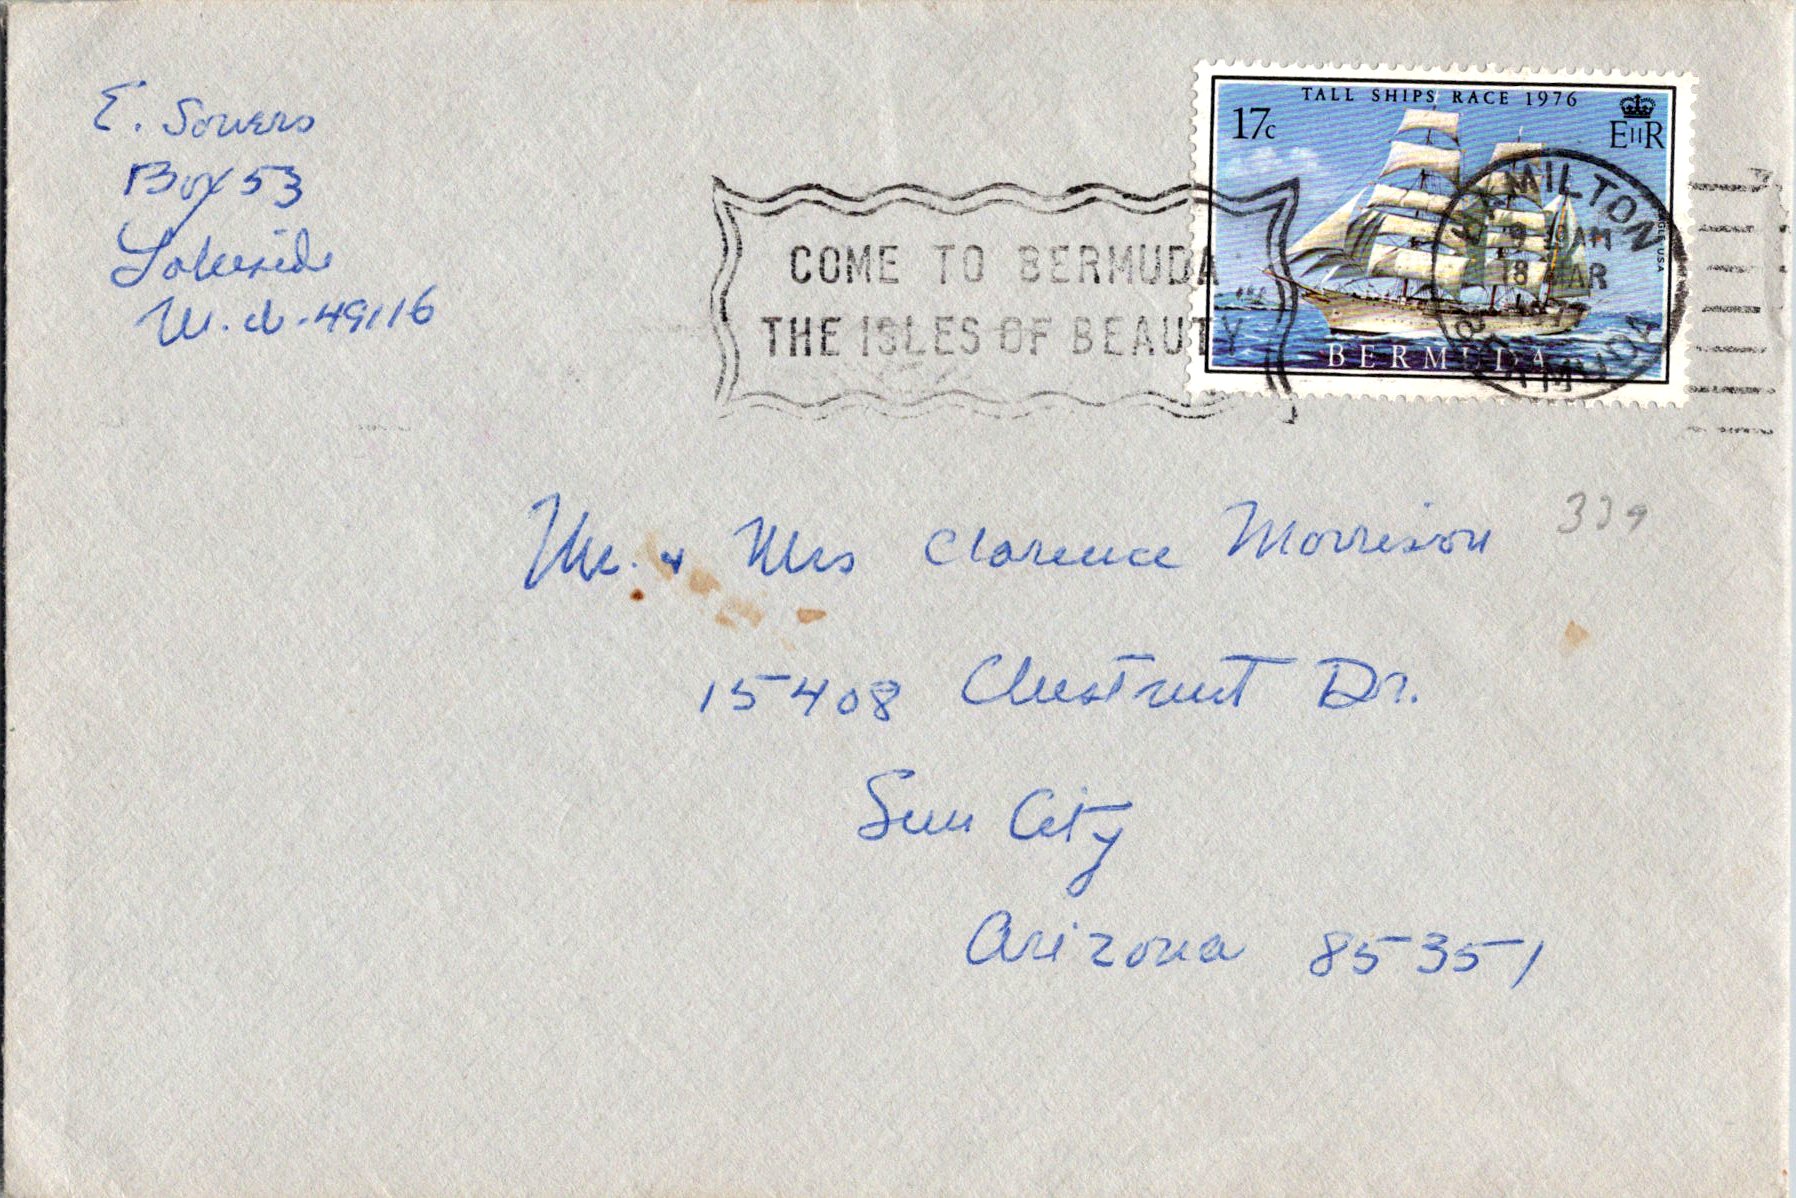 E. Sowers
Box 53
Lakeside
Mich. 49116
TALL SHIPS RACE 1976
17c
EIIR
BERMUDA
COME TO BERMUDA
THE ISLES OF BEAUTY
HAMILTON
AM
18 MAR
1977
BERMUDA
Mr. & Mrs Clarence Morrison
15408 Chestnut Dr.
Sun City
Arizona 85351